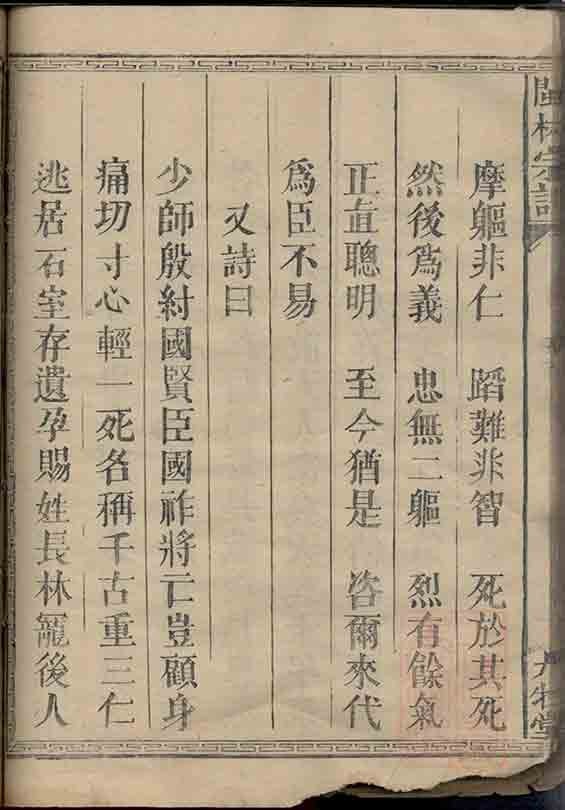 摩軀非仁　蹈難非智　死於其死
然後爲義　忠無二軀　烈有餘氣
正直聰明　至今猶是　咨爾來代
爲臣不易
又詩曰
少師殷紂國賢臣國祚將亡豈顧身
痛切寸心輕一死名稱千古重三仁
逃居石室存遺孕賜姓長林寵後人